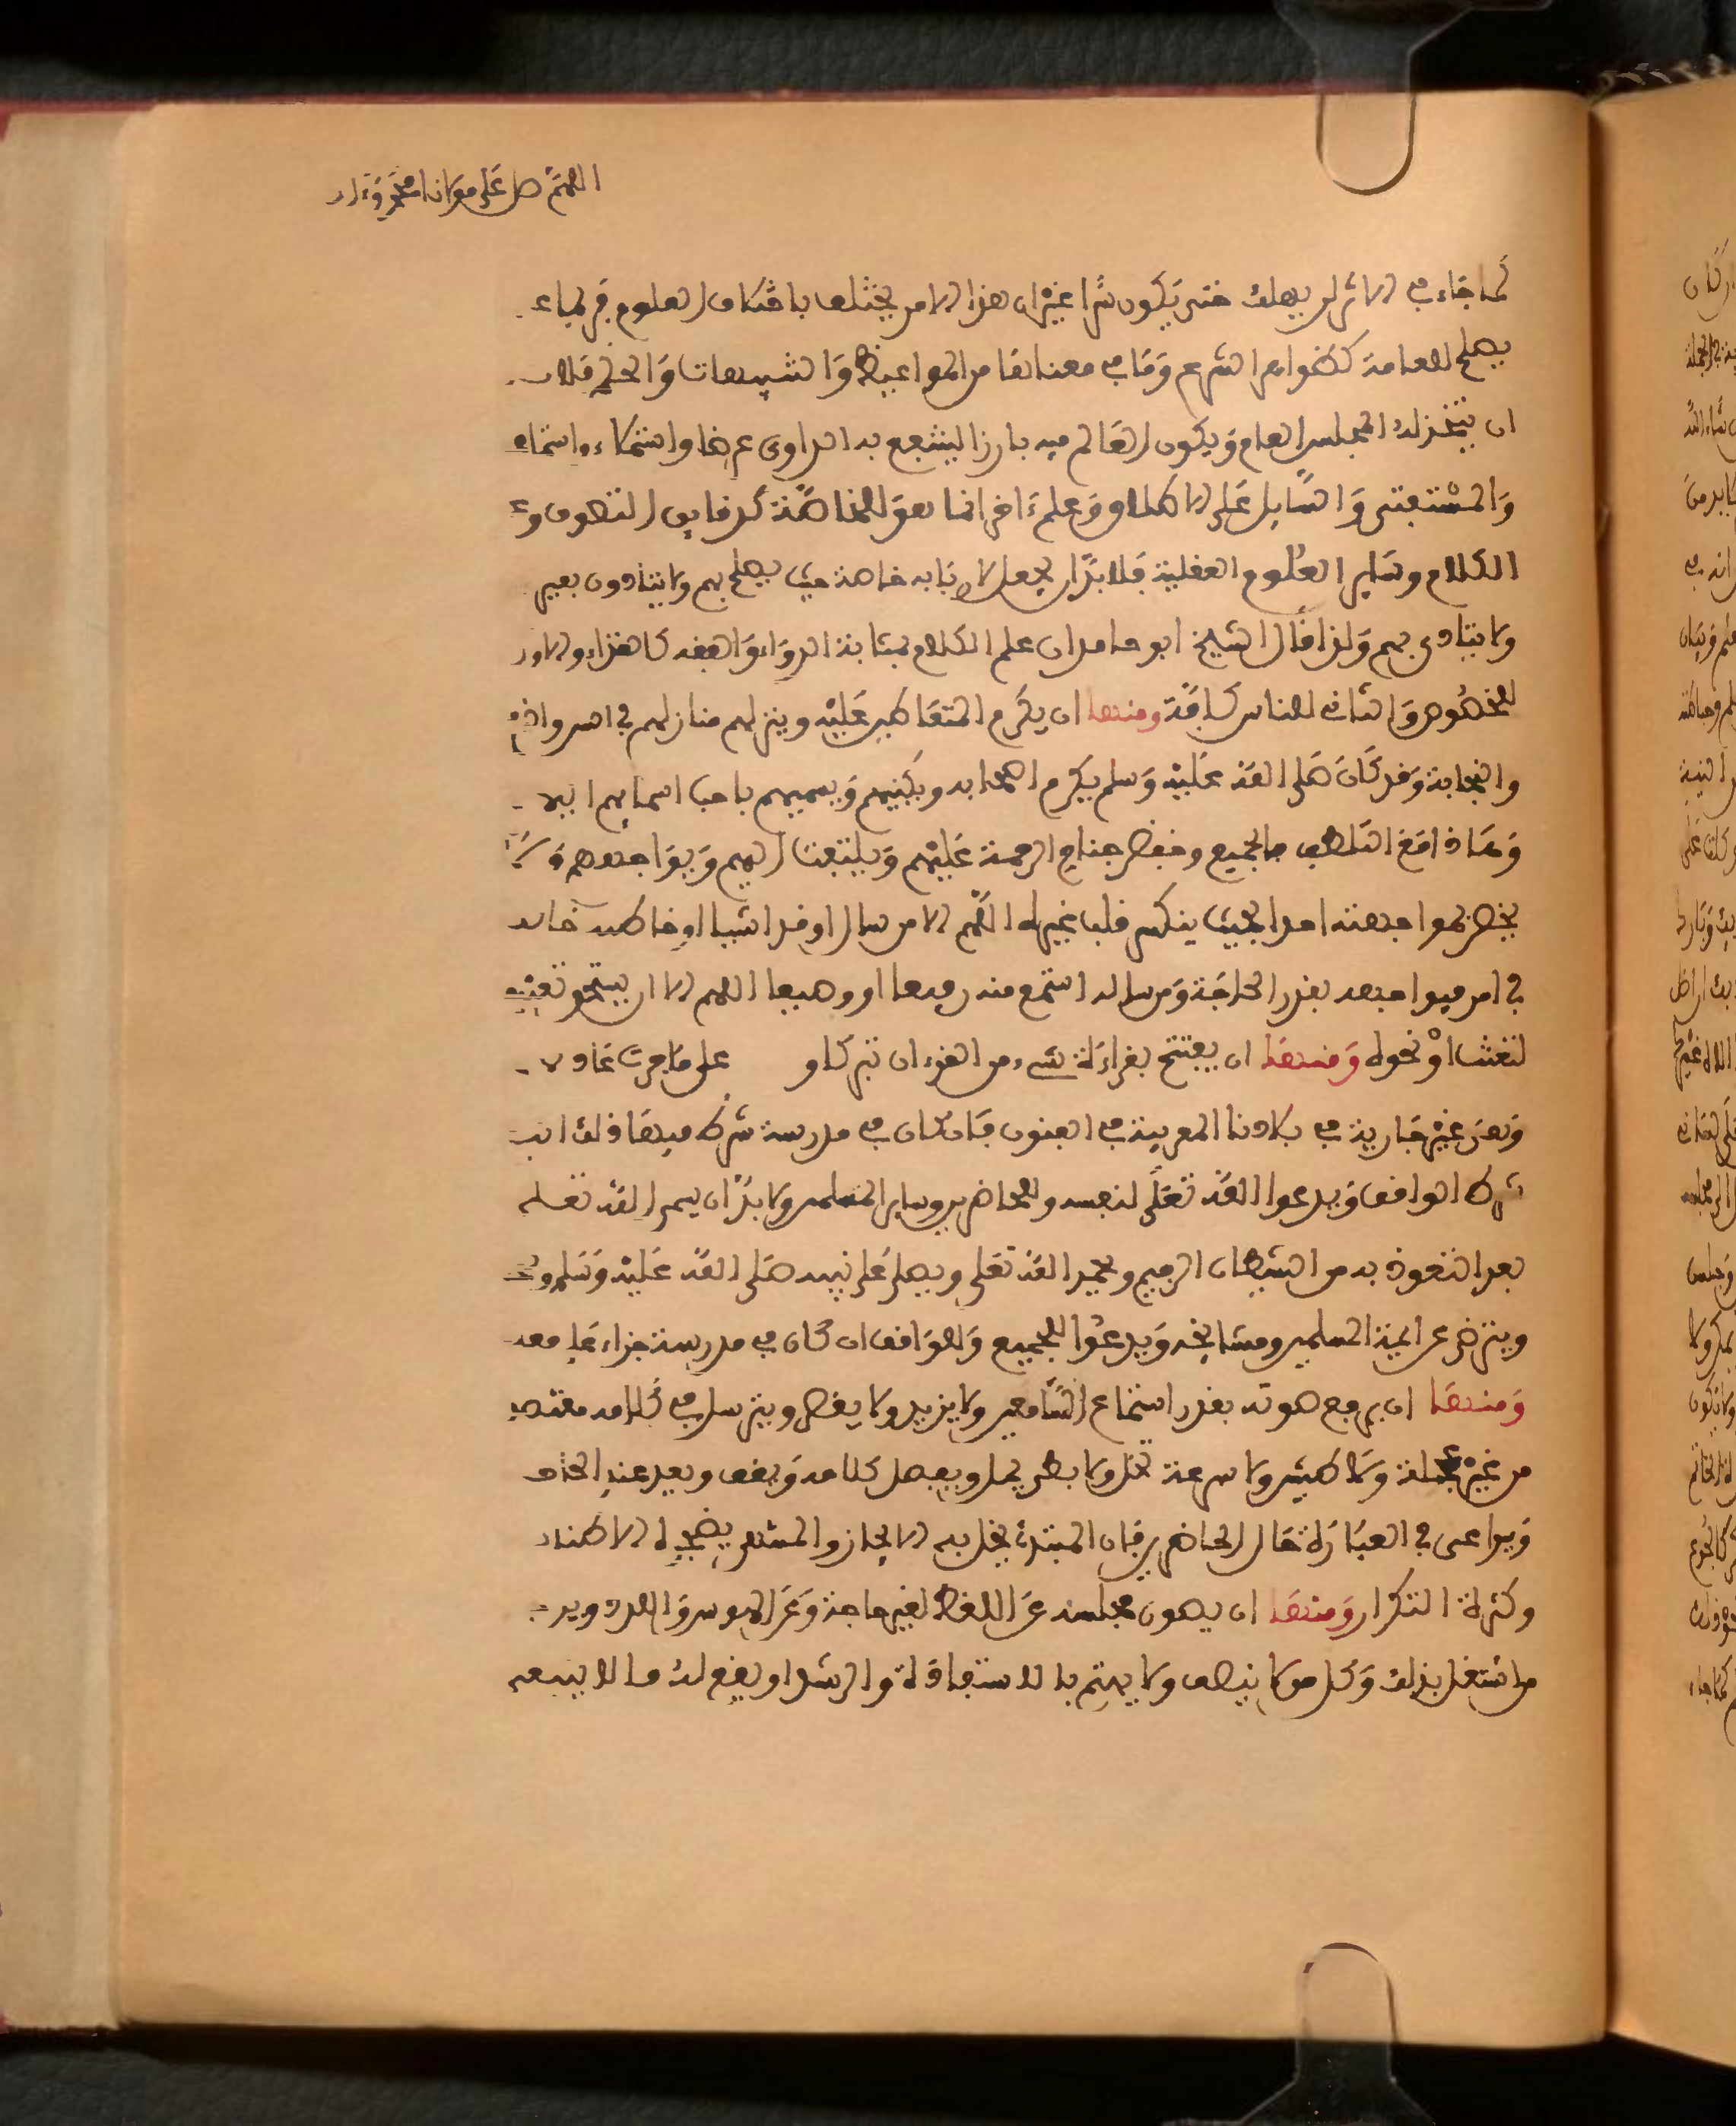 اللهم صل على مولانا محمد وءاله
كما جاء في الاثر لن يهلك حتى يكون سرا غير ان هذا الامر يختلف باختلاف العلوم فرب ما
يصلح للعامة كظواهر الشرع وما في معناها من المواعيظ والتنبيهات والحكم فلابد
ان يتخذ له المجلس العام ويكون العالم فيه بارزا لينتفع به الراوي عرضا واستملاء واستماعا
والمستفتي والسايل على الاطلاق وعلم ءاخر انما هو للخاصة كدقايق التصوف و
الكلام وساير العلوم العقلية فلا بد ان يجعل لاربابه خاصة حيث يصلح بهم ولا يتاذون بغيرهم
ولا يتاذى بهم ولذا قال الشيخ ابو حامد ان علم الكلام بمثابة الدواء والفقه كالغذاء والاول
للخصوص والثاني للناس كافة ومنها ان يكرم المتعاطين عليه وينزلهم منازلهم في السن والفهم
والنجابة وقد كان صلى الله عليه وسلم يكرم اصحابه ويكنيهم ويسميهم باحب اسمايهم اليهم
وهذا مع التلطف بالجميع وخفض جناح الرحمة عليهم ويلتفت اليهم ويواجههم ولا
يخص بمواجهته احدا بحيث ينكسر قلب غيره اللهم الا من سال او قرا شيا او خاطبه خاصة
في امر فيواجهه بقدر الحاجة ومن ساله استمع منه رفيعا او وضيعا اللهم الا ان يستحق تعنيته
لتعنت او نحوه ومنها ان يفتتح بقراءة شيء من القرءان تبركا و على ما جرت عادة
وهذه غير جارية في بلادنا المغربية في الفنون فان كان في مدرسة شرط فيها ذلك اتبع
شرط الواقف ويدعوا الله تعلى لنفسه وللحاضرين وساير المسلمين ولا بد ان يسمي الله تعلى
بعد التعوذ به من الشيطان الرجيم ويحمد الله تعلى ويصلي على نبيه صلى الله عليه وسلم
ويترضى عن ايمة المسلمين ومشايخه ويدعوا للجميع وللواقف ان كان في مدرسة جزاء على فعله
ومنها ان يرفع صوته بقدر استماع السامعين ولا يزيد ولا ينقص ويترسل في كلامه مقتصدا
من غير عجلة ولا طيش ولا سرعة تخل ولا بطء يمل ويفصل كلامه ويقف ويعيد عند الختم
ويراعى في العبارة حال الحاضرين فان المبتدئ يخل به الايجاز والمنتهي يضجره الاطناب
وكثرة التكرار ومنها ان يصون مجلسه عن اللغط لغير حاجة وعن
من اشتغل بذلك وكل من لا ينصف ولا يهتم بالاستفادة والرشد او يقع له ما لا ينبغي